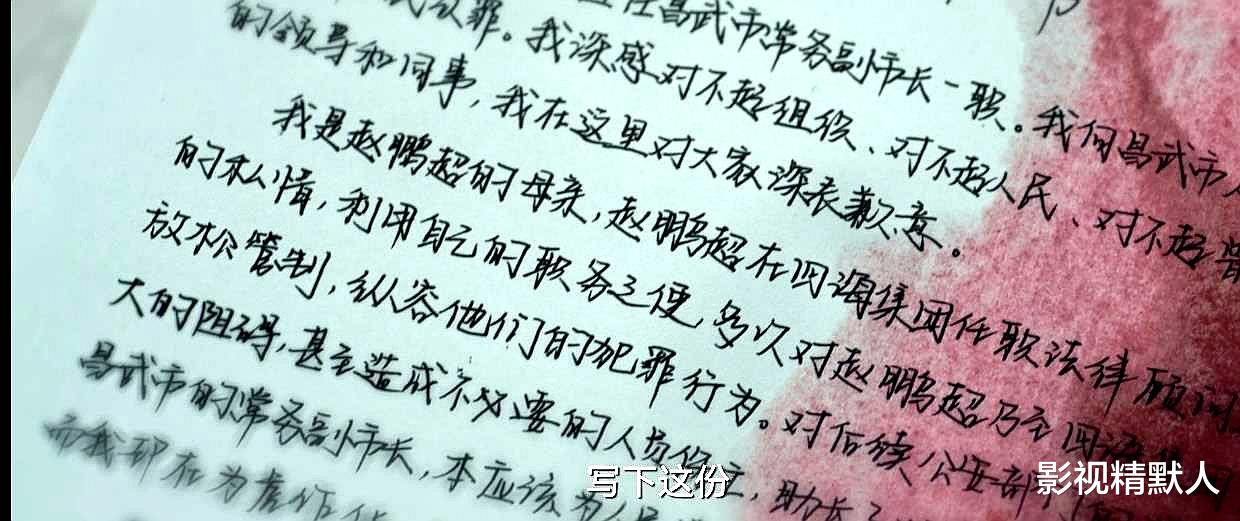 任昌武市常务副市长一职。我向昌武市
罪。我深感对不起组织、对不起人民、对不起
的领导和同事，我在这里对大家深表歉意。
我是赵鹏超的母亲，赵鹏超在四海集团任职法律顾问
的私情，利用自己的职务之便，多次对赵鹏超乃至四海
放松管制，纵容他们的犯罪行为。对后续公安部
大的阻碍，甚至造成不必要的人员伤亡，助长
昌武市的常务副市长，本应该为人民
而我却在为虎作伥
写下这份
影视精默人